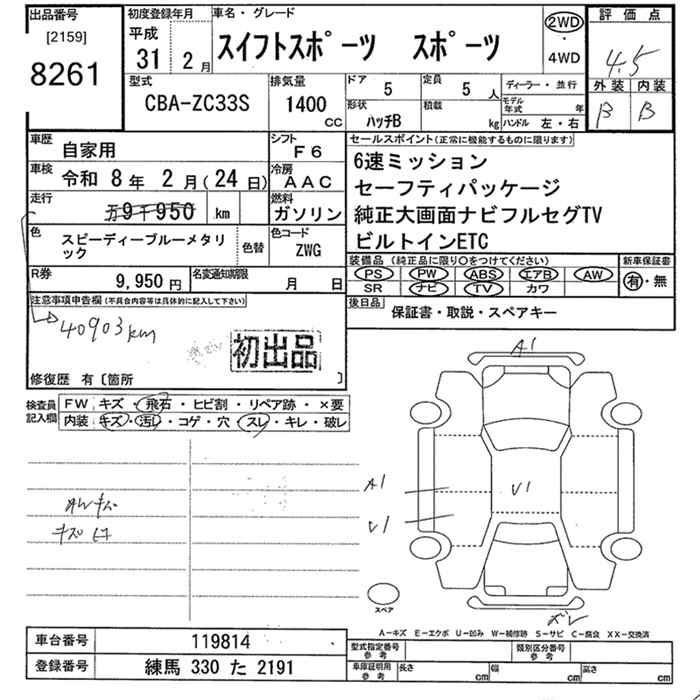 出品番号
[2159]
8261
初度登録年月
平成
31 2 月
車名・グレード
スイフトスポーツ スポーツ
2WD
・
4WD
評価点
4.5
外装 内装
B B
型式
CBA-ZC33S
排気量
1400
CC
ドア
5
定員
5 人
形状
ハッチB
積載
kg
ディーラー・並行
モデル年式 年
ハンドル 左・右
車歴
自家用
シフト
F6
車検
令和 8 年 2 月(24 日)
冷房
AAC
走行
万9千950 km
燃料
ガソリン
色
スピーディーブルーメタリック
色替
色コード
ZWG
R券
9,950 円
名変通知期限
月 日
セールスポイント(正常に機能するものに限ります)
6速ミッション
セーフティパッケージ
純正大画面ナビフルセグTV
ビルトインETC
装備品 (純正品に限り○をつけてください)
PS PW ABS エアB AW
SR ナビ TV カワ
新車保証書
有・無
後日品
保証書・取説・スペアキー
注意事項申告欄(不具合内容等は具体的に記入して下さい)
40903km
初出品
修復歴 有〔箇所 〕
検査員
記入欄
FW キズ・飛石・ヒビ割・リペア跡・×要
内装 キズ・汚レ・コゲ・穴・スレ・キレ・破レ
キズ
A1
A1
U1
U1
スペア
ズレ
A-キズ E-エクボ U-凹み W-補修跡 S-サビ C-腐食 XX-交換済
車台番号
119814
登録番号
練馬 330 た 2191
型式指定番号
参考
類別区分番号
参考
車庫証明用
参考
長さ cm
幅 cm
高さ cm